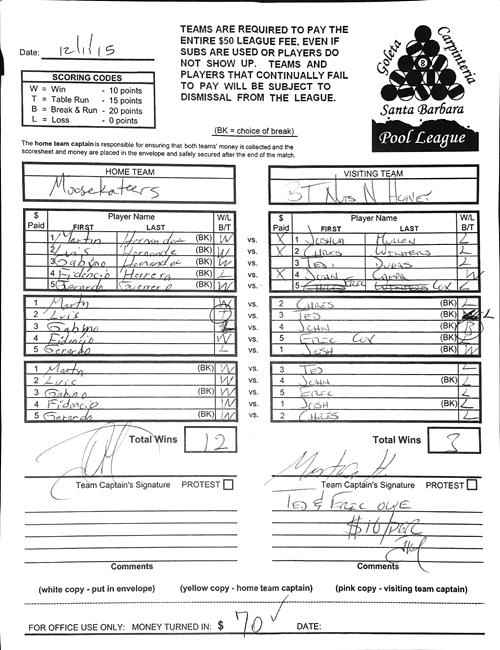 TEAMS ARE REQUIRED TO PAY THE
ENTIRE $50 LEAGUE FEE, EVEN IF
SUBS ARE USED OR PLAYERS DO
NOT SHOW UP. TEAMS AND
PLAYERS THAT CONTINUALLY FAIL
TO PAY WILL BE SUBJECT TO
DISMISSAL FROM THE LEAGUE.
(BK = choice of break)
Date: 12/1/15
SCORING CODES
W = Win - 10 points
T = Table Run - 15 points
B = Break & Run - 20 points
L = Loss - 0 points
Goleta
Carpinteria
8
Santa Barbara
Pool League
The home team captain is responsible for ensuring that both teams' money is collected and the
scoresheet and money are placed in the envelope and safely secured after the end of the match.
HOME TEAM
Moosekateers
VISITING TEAM
3T Nuts N Honey
$ Paid Player Name FIRST LAST W/L B/T
1 Martin Hernandez (BK) W vs.
2 Luis Hernandez W vs.
3 Gabino Hernandez (BK) W vs.
4 Fidencio Herrera L vs.
5 Gerardo Guerrero (BK) W vs.
$ Paid Player Name FIRST LAST W/L B/T
X 1 Joshua Mullen L
X 2 Chris Winters L
3 Ted Dubas L
X 4 John Cappa W
5 Eric Cox L
1 Martin W vs.
2 Luis T vs.
3 Gabino L vs.
4 Fidencio W vs.
5 Gerardo L vs.
2 Chris (BK) L
3 Ted L
4 John (BK) B
5 Eric Cox L
1 Josh (BK) W
1 Martin (BK) W vs.
2 Luis W vs.
3 Gabino (BK) W vs.
4 Fidencio W vs.
5 Gerardo (BK) W vs.
3 Ted L
4 John (BK) L
5 Eric L
1 Josh (BK) L
2 Chris L
Total Wins 12
Total Wins 3
Team Captain's Signature PROTEST
Team Captain's Signature PROTEST
Ted & Eric owe
$10/per
Comments
Comments
(white copy - put in envelope) (yellow copy - home team captain) (pink copy - visiting team captain)
FOR OFFICE USE ONLY: MONEY TURNED IN: $ 70 DATE: